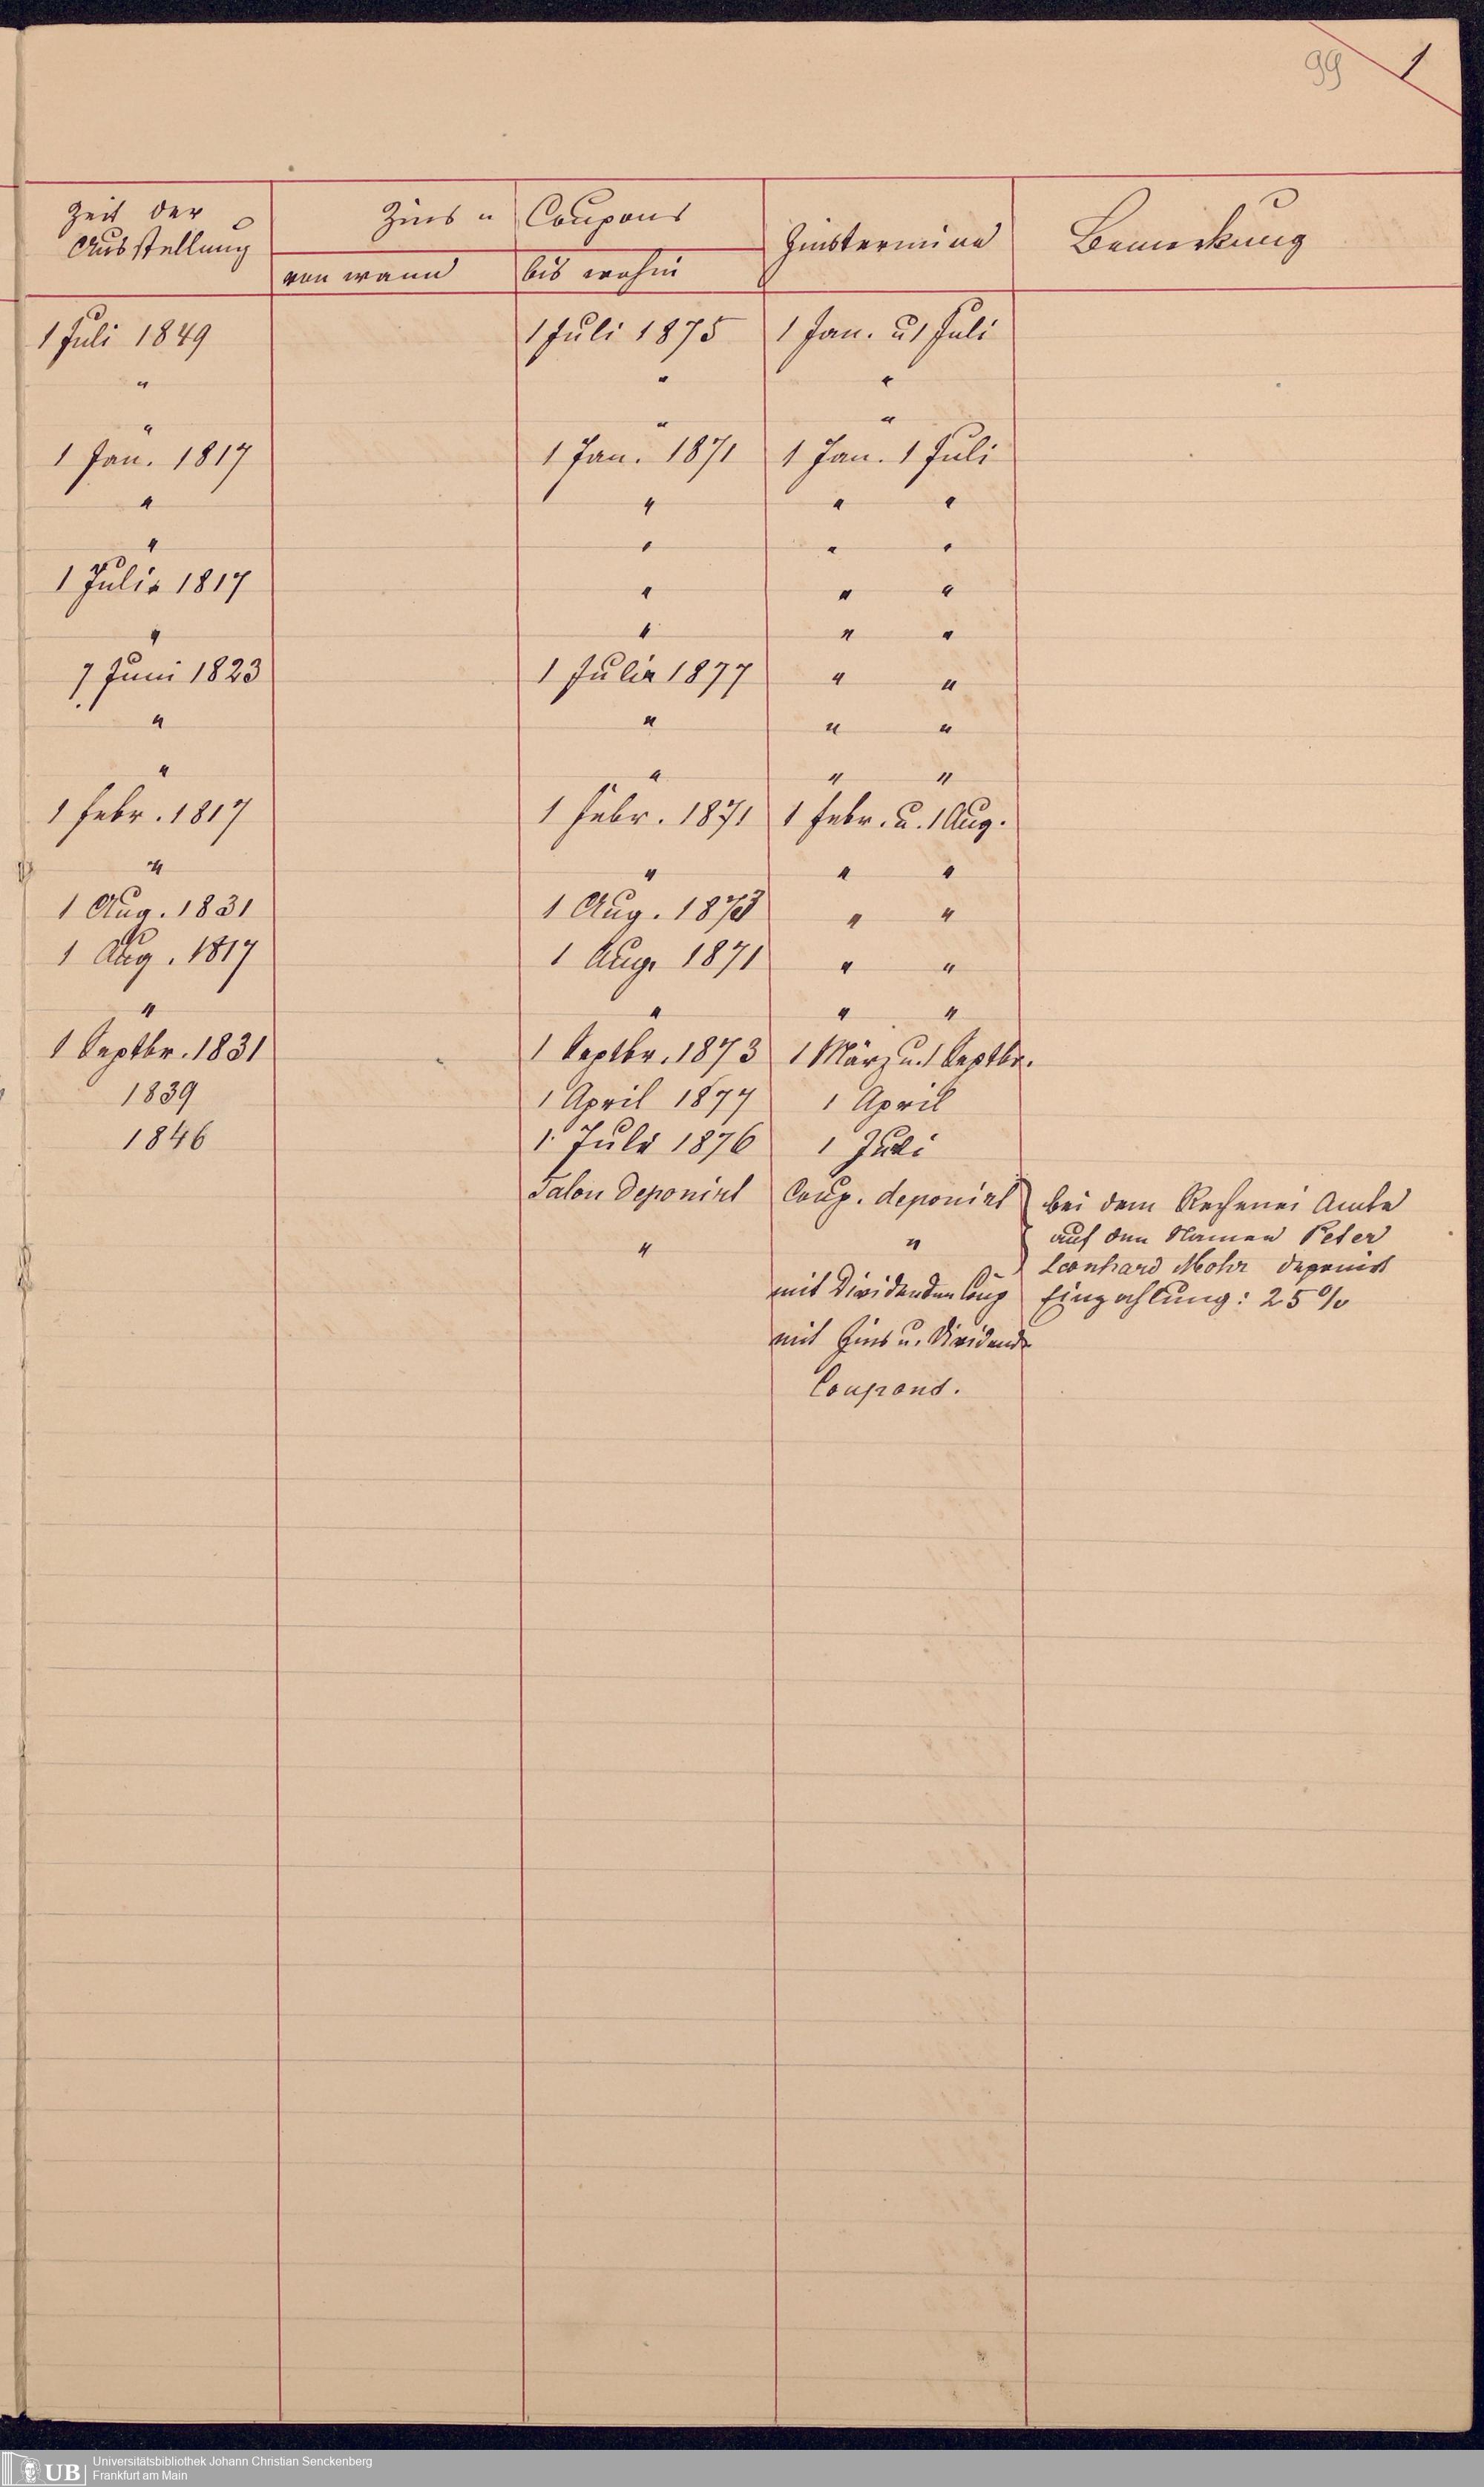 99 1
Zeit der Ausstellung Zins " Coupons Zinstermine Bemerkung
von wann bis wohin
1 Juli 1849 1 Juli 1875 1 Jan. u 1 Juli
" " "
" " "
1 Jan. 1817 1 Jan. 1871 1 Jan. 1 Juli
" " " "
" " " "
1 Juli 1817 " " "
" " " "
7 Juni 1823 1 Juli 1877 " "
" " " "
" " " "
1 Febr. 1817 1 Febr. 1871 1 Febr. u. 1 Aug.
" " " "
1 Aug. 1831 1 Aug. 1873 " "
1 Aug. 1817 1 Aug. 1871 " "
" " " "
1 Septbr. 1831 1 Septbr. 1873 1 März u. 1 Septbr.
1839 1 April 1877 1 April
1846 1 Juli 1876 1 Juli
Talon deponirt Coup. deponirt bei dem Rechenei Amte
auf den Namen Peter
" "
Leonhard Mohr deponirt
mit Dividenden Coup Einzahlung: 25 %
mit Zins u. Dividende
Coupons.
UB
Universitätsbibliothek Johann Christian Senckenberg
Frankfurt am Main